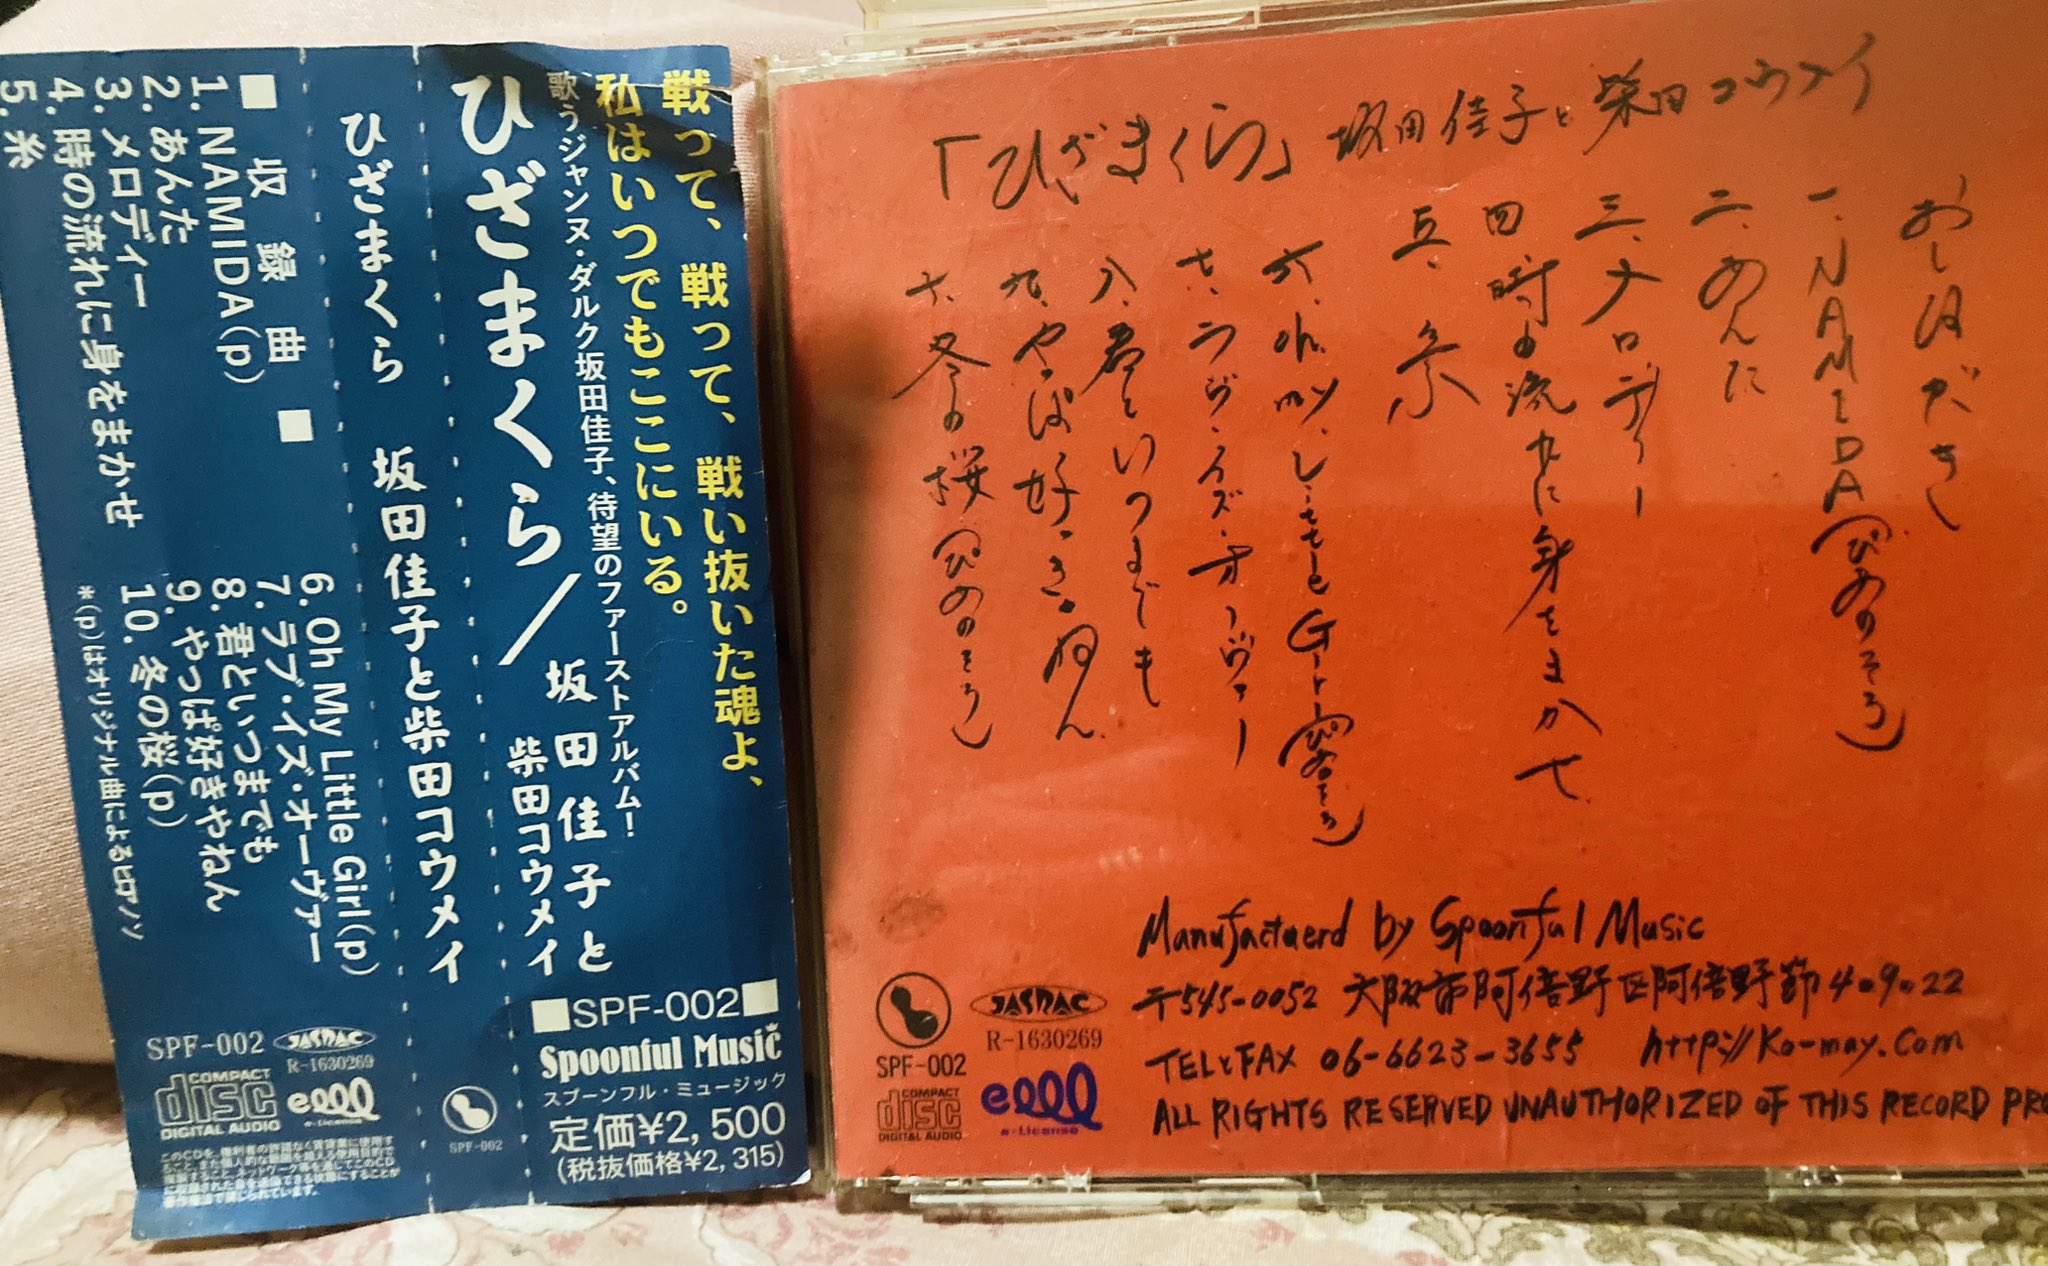 戦って、戦って、戦い抜いた魂よ、
私はいつでもここにいる。
歌うジャンヌ・ダルク坂田佳子、待望のファーストアルバム!
ひざまくら/坂田佳子と
柴田コウメイ
■SPF-002■
Spoonful Music
スプーンフル・ミュージック
定価¥2,500
(税抜価格¥2,315)
ひざまくら 坂田佳子と柴田コウメイ
SPF-002
■収録曲■
1. NAMIDA(p)
2. あんた
3. メロディー
4. 時の流れに身をまかせ
5. 糸
6. Oh My Little Girl(p)
7. ラブ・イズ・オーヴァー
8. 君といつまでも
9. やっぱ好きやねん
10. 冬の桜(p)
*(p)はオリジナル曲によるピアノソ
SPF-002
JASRAC
R-1630269
COMPACT
disc
DIGITAL AUDIO
e-License
「ひざまくら」坂田佳子と柴田コウメイ
おしながき
一、NAMIDA(ぴあのそろ)
二、あんた
三、メロディー
四 時の流れに身をまかせ
五、糸
六、oh.my.Little Girl(ぴあのそろ)
七、ラヴ・イズ・オーヴァー
八、君といつまでも
九、やっぱ好っきゃねん
十、冬の桜(ぴあのそろ)
Manufactuerd by Spoonful Music
〒545-0052 大阪市阿倍野区阿倍野筋4.9.22
TELとFAX 06-6623-3655 http://Ko-may.Com
ALL RIGHTS RESERVED UNAUTHORIZED OF THIS RECORD PRO
SPF-002
JASRAC
R-1630269
COMPACT
disc
DIGITAL AUDIO
e-License